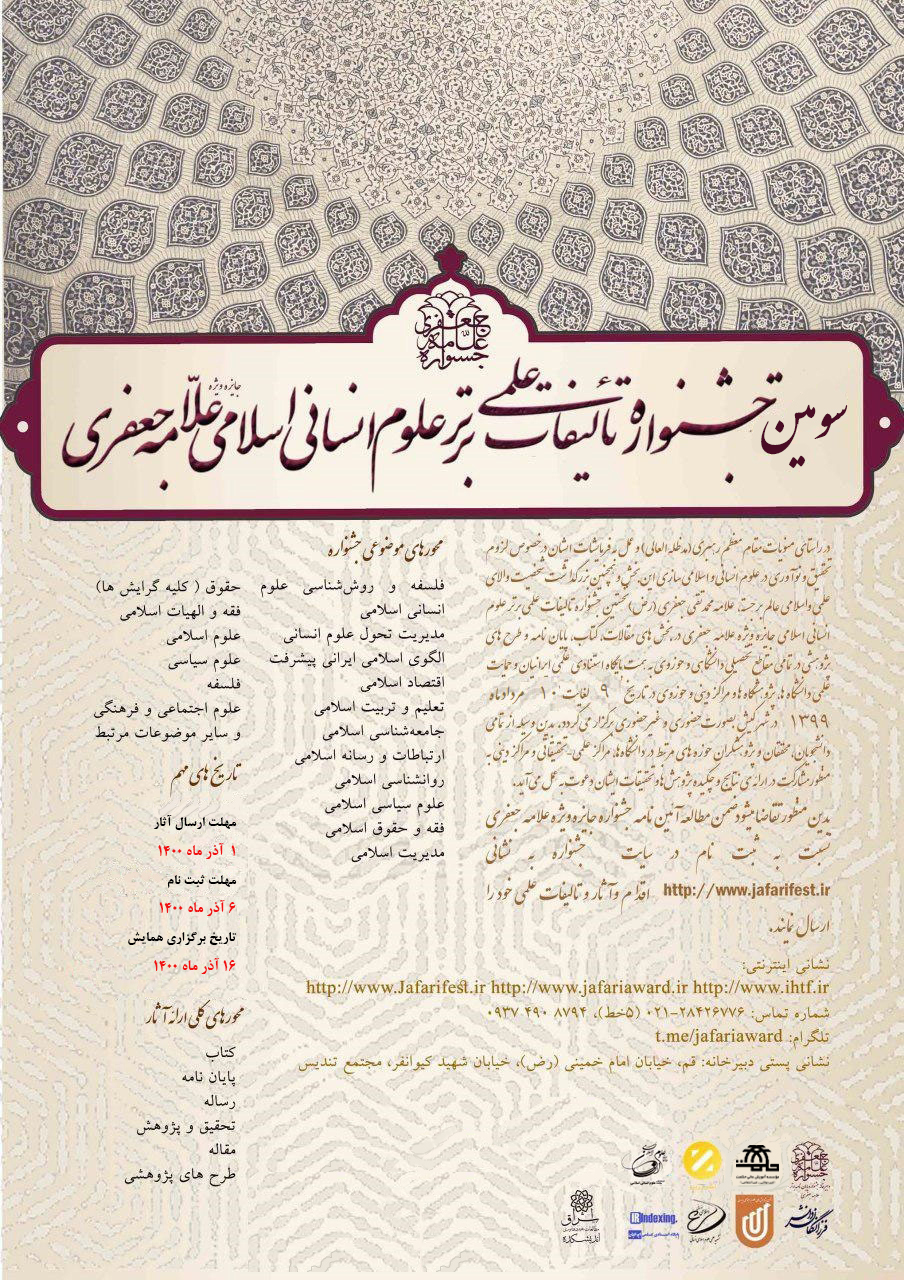 جشنواره علامه جعفری
سومین جشنواره تألیفات علمی برتر علوم انسانی اسلامی جایزه ویژه علّامه جعفری
در راستای منویات مقام معظم رهبری (مدظله العالی) و عمل به فرمایشات ایشان در خصوص لزوم
تحقیق و نوآوری در علوم انسانی و اسلامی سازی این بخش و همچنین بزرگداشت شخصیت والای
علمی و اسلامی عالم برجسته، علامه محمدتقی جعفری (رض) نخستین جشنواره تالیفات علمی برتر علوم
انسانی اسلامی جایزه ویژه علامه جعفری در بخش های مقالات، کتاب، پایان نامه و طرح های
پژوهشی در تمامی مقاطع تحصیلی دانشگاهی و حوزوی به همت پایگاه استنادی علمی ایرانیان و حمایت
علمی دانشگاه ها، پژوهشگاه ها و مراکز دینی و حوزوی در تاریخ ۹ لغایت ۱۰ مردادماه
۱۳۹۹ در شهر کیش بصورت حضوری و غیر حضوری برگزار می گردد. بدین وسیله از تمامی
دانشجویان، محققان و پژوهشگران حوزه های مرتبط در دانشگاه‌ها، مراکز علمی-تحقیقاتی و مراکز دینی به
منظور مشارکت در ارائه‌ی نتایج و چکیده پژوهش‌ها و تحقیقات ایشان دعوت به عمل می آید.
بدین منظور تقاضا میشود ضمن مطالعه آئین نامه جشنواره جایزه ویژه علامه جعفری
نسبت به ثبت نام در سایت جشنواره به نشانی
http://www.jafarifest.ir اقدام و آثار و تالیفات علمی خود را
ارسال نمایند.
محورهای موضوعی جشنواره
فلسفه و روش‌شناسی علوم
انسانی اسلامی
مدیریت تحول علوم انسانی
الگوی اسلامی ایرانی پیشرفت
اقتصاد اسلامی
تعلیم و تربیت اسلامی
جامعه‌شناسی اسلامی
ارتباطات و رسانه اسلامی
روانشناسی اسلامی
علوم سیاسی اسلامی
فقه و حقوق اسلامی
مدیریت اسلامی
حقوق ( کلیه گرایش ها)
فقه و الهیات اسلامی
علوم اسلامی
علوم سیاسی
فلسفه
علوم اجتماعی و فرهنگی
و سایر موضوعات مرتبط
تاریخ های مهم
مهلت ارسال آثار
۱ آذر ماه ۱۴۰۰
مهلت ثبت نام
۶ آذر ماه ۱۴۰۰
تاریخ برگزاری همایش
۱۶ آذر ماه ۱۴۰۰
محورهای کلی ارائه آثار
کتاب
پایان نامه
رساله
تحقیق و پژوهش
مقاله
طرح های پژوهشی
نشانی اینترنتی:
http://www.Jafarifest.ir http://www.jafariaward.ir http://www.ihtf.ir
شماره تماس: ۲۸۴۲۶۷۷۶-۰۲۱ (۵خط)، ۸۷۹۴ ۴۹۰ ۰۹۳۷
تلگرام: t.me/jafariaward
نشانی پستی دبیرخانه: قم، خیابان امام خمینی (رض)، خیابان شهید کیوانفر، مجتمع تندیس
IRIndexing.
اندیشکده